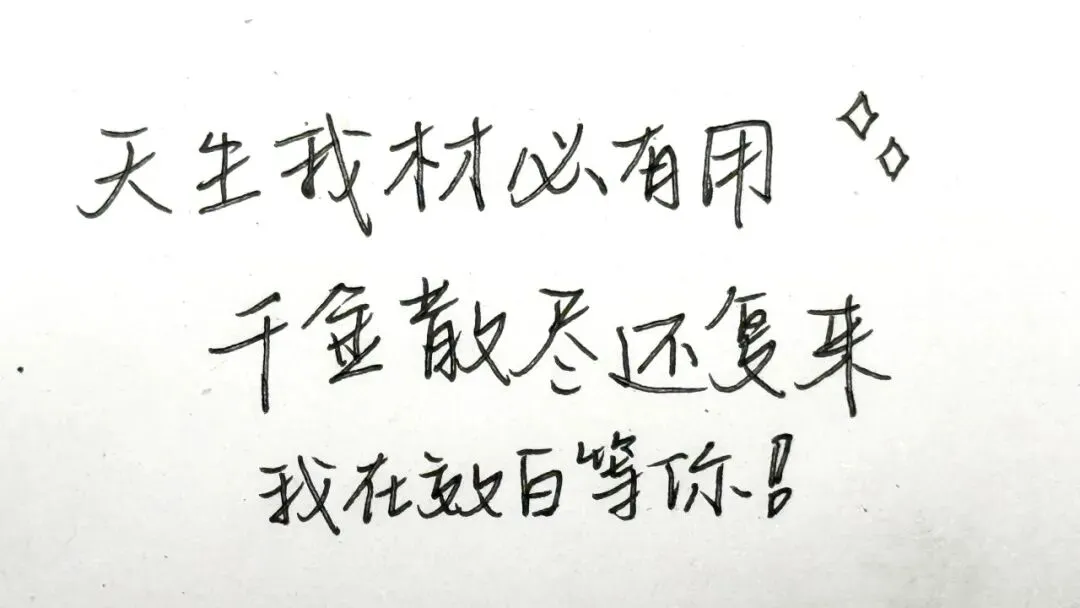 天生我材必有用
千金散尽还复来
我在效白等你!